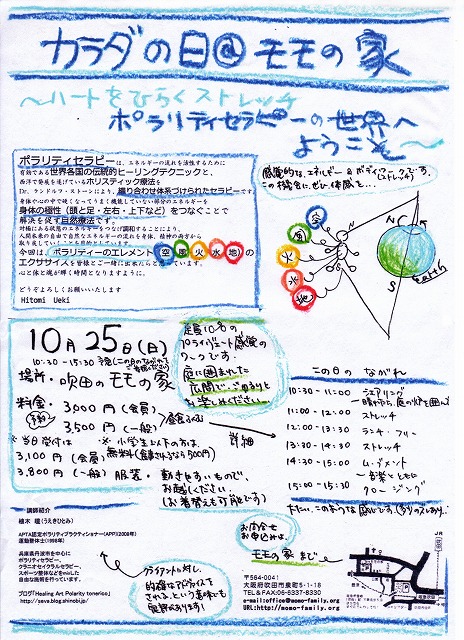 カラダの日@モモの家
〜ハートをひらくストレッチ
ポラリティセラピーの世界へ
ようこそ〜
ポラリティセラピーは、エネルギーの流れを活性するために
有効である世界各国の伝統的ヒーリングテクニックと、
西洋で発展を遂げているホリスティック療法を
Dr.ランドルフ・ストーンにより、織り合わせ体系づけられたセラピーです
身体や心の中で硬くなってうまく機能していない部分のエネルギーを
身体の極性（頭と足・左右・上下など）をつなぐことで
解決を促す自然療法です。
対極にある状態のエネルギーをつなげ調和することにより、
人間本来の自由で自然なエネルギーの流れを身体、精神の両方から
取り戻していくことを目的としています。
今回は、ポラリティーのエレメント（空風火水地）の
エクササイズを皆様とご一緒に出来たらと思っています。
心と体と魂が輝く時間となりますように。
どうぞよろしくお願いいたします
Hitomi Ueki
感覚的な、エネルギー&ボディワークです。
この機会に、ぜひ、体感を...
空
風
火
水
地
N
S
earth
10月25日(日)
10:30-15:30
場所・吹田のモモの家
料金・3,000円（会員）
予約
3,500円（一般）
昼食ふくむ
※当日受付は
3,100円（会員）
3,800円（一般）
※小学生以下の方は、
無料（食事される方は500円）
服装・動きやすいもので、
お越しください
（お着替えも可能です）
定員10名の、
プライベート感覚の
ワークです。
庭に囲まれた
広間で、ごゆるりと
お楽しみください。
詳細
この日のながれ
10:30-11:00 シェアリング
11:00-12:00 ストレッチ
12:00-13:30 ランチ・フリー
13:30-14:30 ストレッチ
14:30-15:00 ムーブメント
〜音楽とともに
15:00-15:30 クロージング
だいたい、このような感じです。
講師紹介
植木 瞳（うえきひとみ）
APTA認定ポラリティプラクティショナー(APP)(2008年)
運動整体士(1998年)
兵庫県丹波市を中心に
ポラリティセラピー、
クラニオセイクラルセラピー、
スポーツ整体などを込めた
自由な施術を行っています。
ブログ「Healing Art Polarity tonerico」
http://seva.blog.shinobi.jp/
クライアントに対し、
的確なアドバイスを
されるという意味でも
定評があります！
お問合せ
お申込みは、
モモの家まで
〒564-0041
大阪府吹田市泉町5-1-18
TEL&FAX:06-6337-8330
e-mail:office@momo-family.org
URL:http://momo-family.org
JR